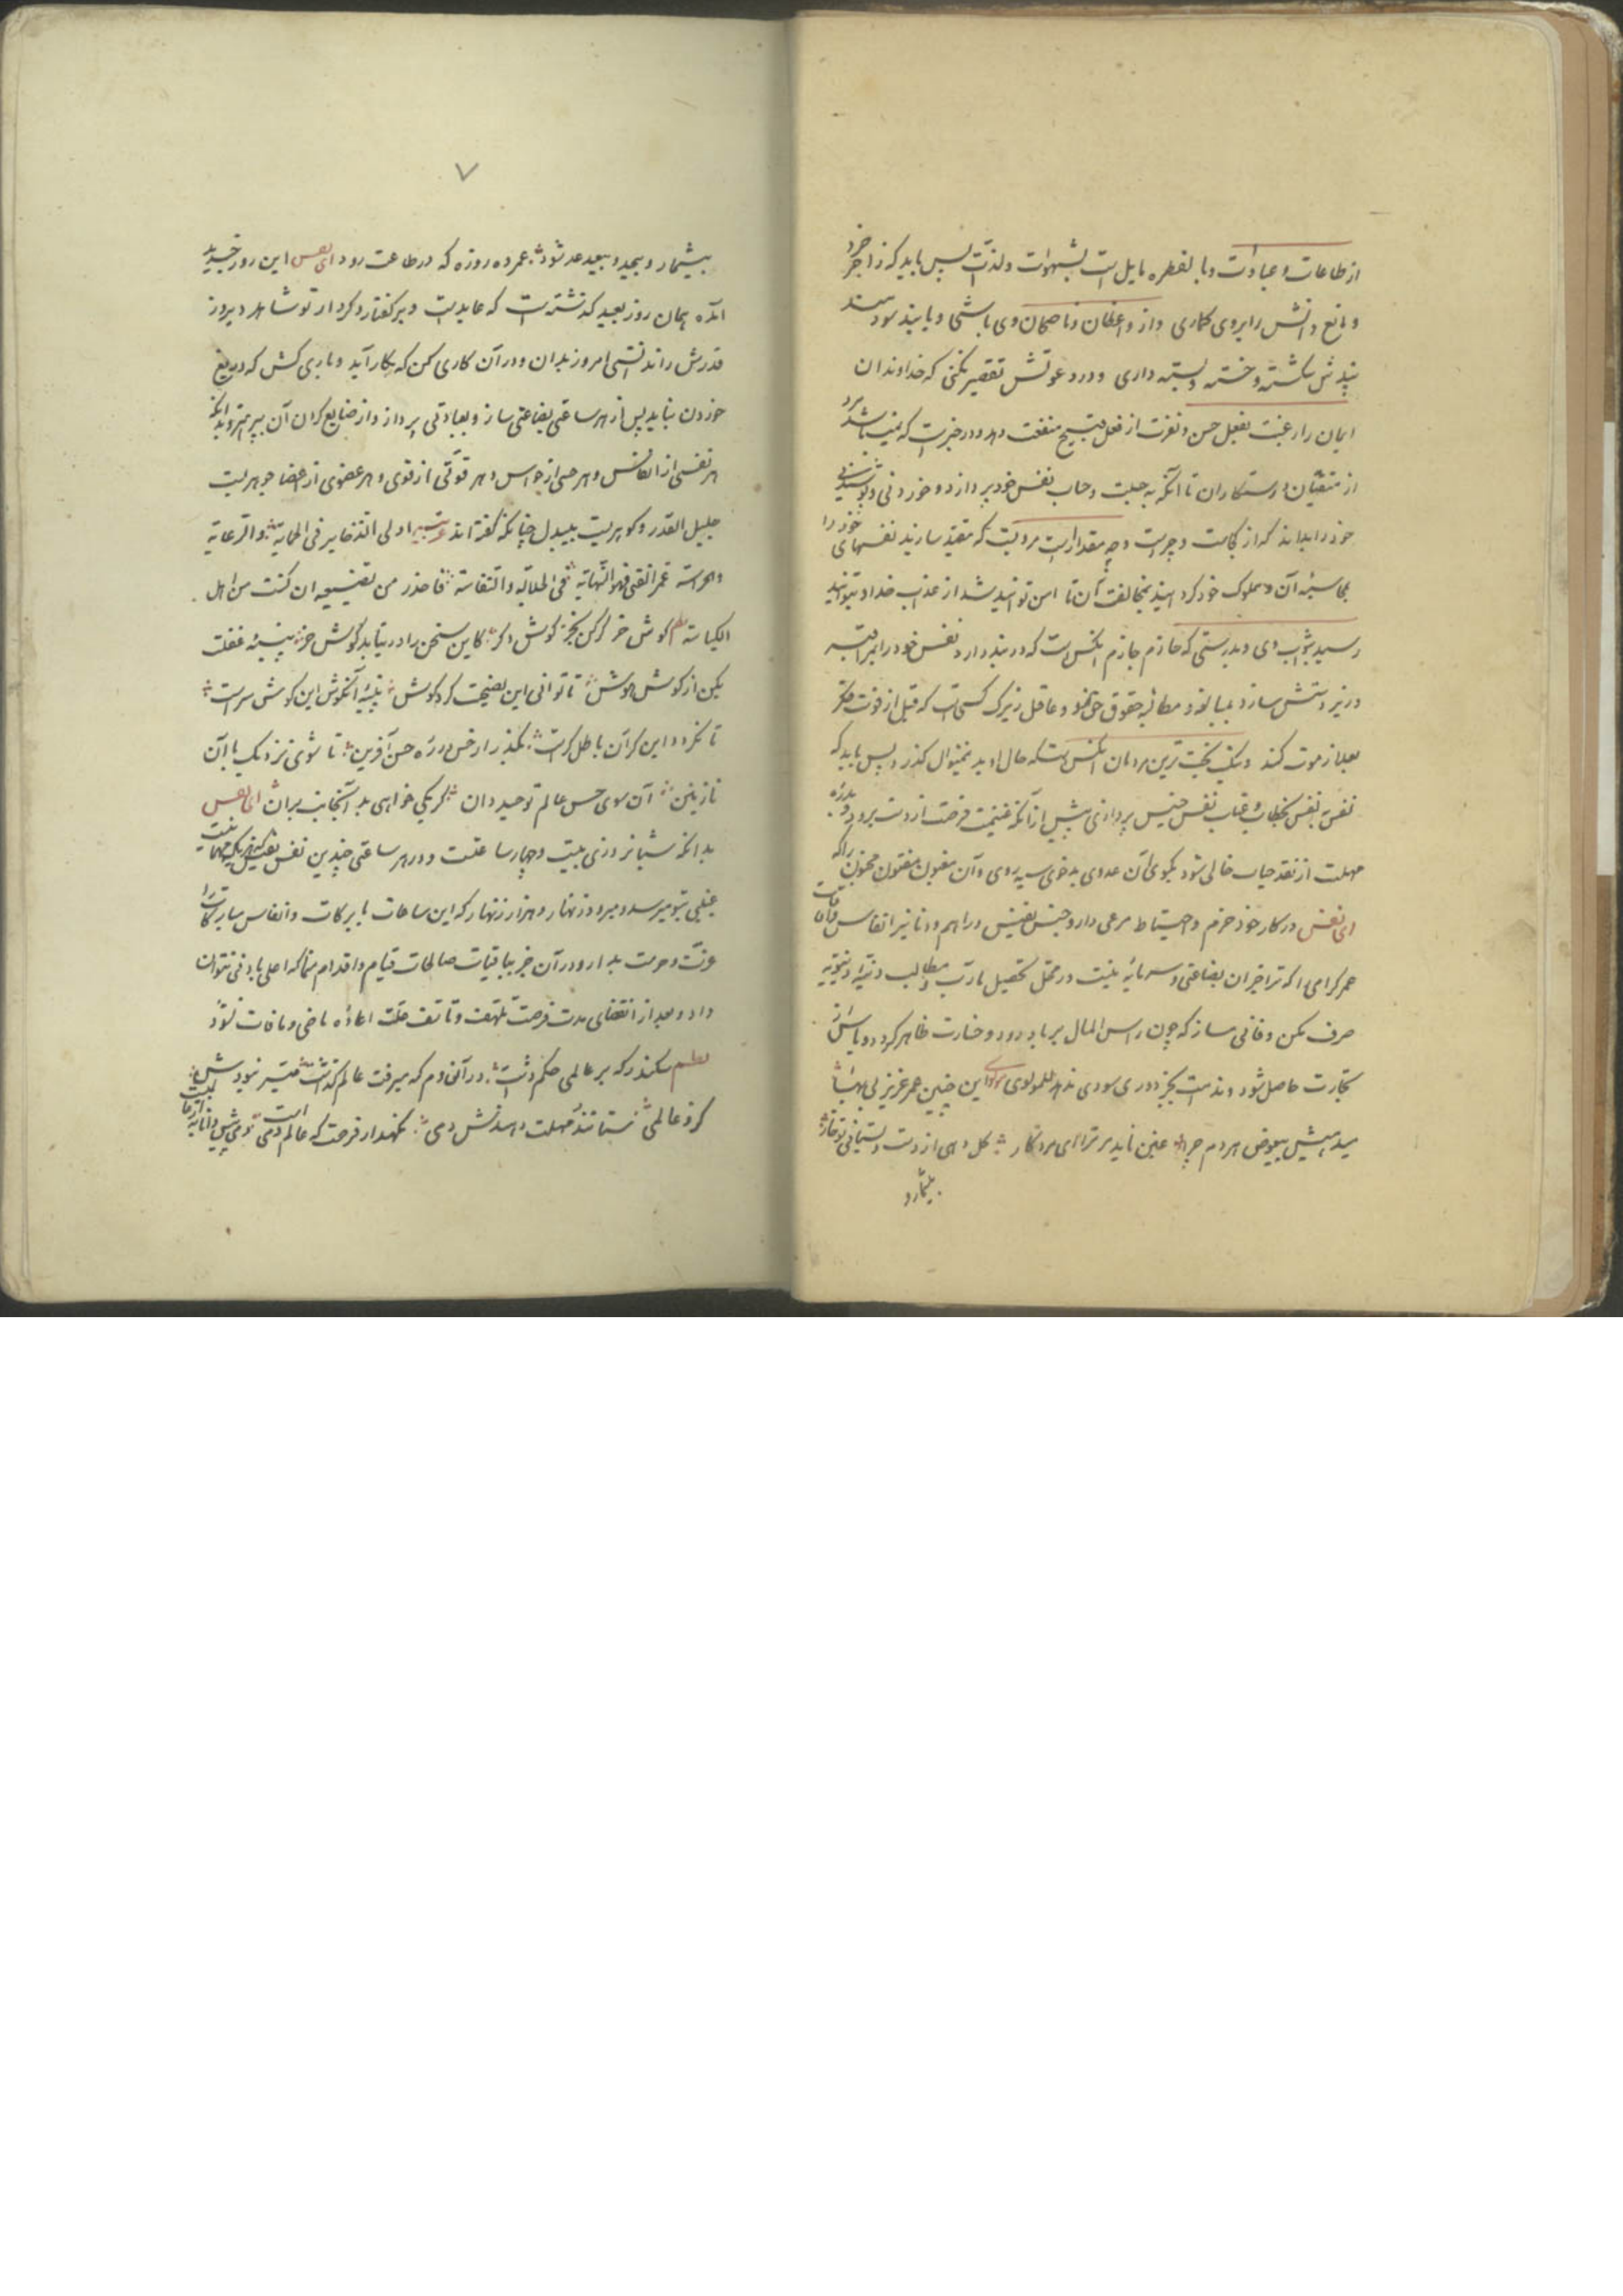 از طاعات و عبادات و بالفطره مایل است بشهوات و لذات پس باید که زاجر خرد
و مانع دانش را بروی گماری و از واعظان و ناصحان وی باشی و یا بند سودمند
بندش شکسته و خسته و بسته داری و در دعوتش تقصیر نکنی که خداوندان
ایمان را رغبت بفعل حسن و نفرت از فعل قبیح منفعت دهد و در خبر است که نمیباشد مرد
از متقیان و رستکاران تا آنکه به حساب نفس خود پردازد و خوردنی و پوشیدنی
خود را بداند که از کجاست و چه مقدار است مرویست که مقید سازید نفسهای خود را
بمحاسبه آن و مملوک خود کردانید بمخالفت آن تا ایمن توانید شد از عذاب خدا و توانید
رسید بثواب وی و بدرستی که حازم جازم آنکس است که در بند دارد نفس خود را بمراقبه
و زیردستش سازد بمبالغه و مطالبه حقوق حق نمود و عاقل زیرک کسی است که قبل از فوت فکر
بعد از موت کند و نیک بخت ترین مردمان آنکس است که حال او بدین منوال کذرد پس باید که
نفس بنفس بخطاب و عتاب نفس خسیس پردازی پیش از آنکه غنیمت فرصت از دست برود و بدره
مهلت از نقد حیات خالی شود بکوی آن عدوی بدخوی سیه روی و آن مغبون مفتون محزون را که
ای نفس در کار خود حزم و احتیاط مرعی دار و جنس نفیس دراهم و دنانیر انفاس و اوقات
عمر کرامی را که ترا جز آن بضاعتی و سرمایه نیست در محل تحصیل مآرب و مطالب دنیه دنیویه
صرف مکن و فانی مساز که چون راس المال بر باد رود و خسارت ظاهر کردد و یاس از
تجارت حاصل شود و ندامت بجز دوری سودی ندهد للمولوی این چنین عمر عزیز بی بها
میدهیش بیعوض هر دم چرا غبن ناید مر ترا ای مرد کار کل دهی از دست و بستانی تو خار
بیشمارد
۷
بیشمار و بیحد و بیعد شود عمر ده روزه که در طاعت رود ای نفس این روز جدید
آمده همان روز بعید کذشته است که عایدست و بر کفتار و کردار تو شاهد دیروز
قدرش را ندانستی امروز بدان و در آن کاری کن که بکار آید و باری کش که دریغ
خوردن نباید پس از هر ساعتی بضاعتی ساز و بعبادتی پرداز و از ضایع کردن آن بپرهیز و بدانکه
هر نفسی از انفاس و هر حسی از حواس و هر قوتی از قوی و هر عضوی از اعضا جوهریست
جلیل القدر و کوهریست بیبدل چنانکه کفته اند عربیه اولی الذخایر فی الحمایة والرعایة
والحراسة عمر الفتی فهو النهایة فی الجلالة والنفاسة فاحذر من تضییعه ان کنت من اهل
الکیاسة نظم کوش خر کرکن بجز کوش دکر کاین سخن را درنیابد کوش خر پنبه غفلت
بکن از کوش هوش تا توانی این نصیحت کرد کوش پنبه آنکوش این کوش سر است
تا نکردد این کر آن باطل کر است بکذر از خس در ره حسن آفرین تا شوی نزدیک با آن
نازنین آن سوی حس عالم توحید دان کر یکی خواهی بدانجانب بران ای نفس
بدانکه شبانروزی بیست و چهار ساعتست و در هر ساعتی چندین نفس
غنی بتو میرسد و میرود زنهار و هزار زنهار که این ساعات با برکات و انفاس مبارکات را
عزت و حرمت بدار و در آن جز بباقیات صالحات قیام و اقدام منما که اعلی بادنی نتوان
داد و بعد از انقضای مدت فرصت تلهف و تأسف علت اعاده ماضی و مافات نشود
نظم سکندر که بر عالمی حکم داشت در آندم که میرفت عالم کذاشت میسر نبودش
کزو عالمی ستانند و مهلت دهندش دمی نکهدار فرصت که عالم دمی است دمی پیش دانا به از عالمیست